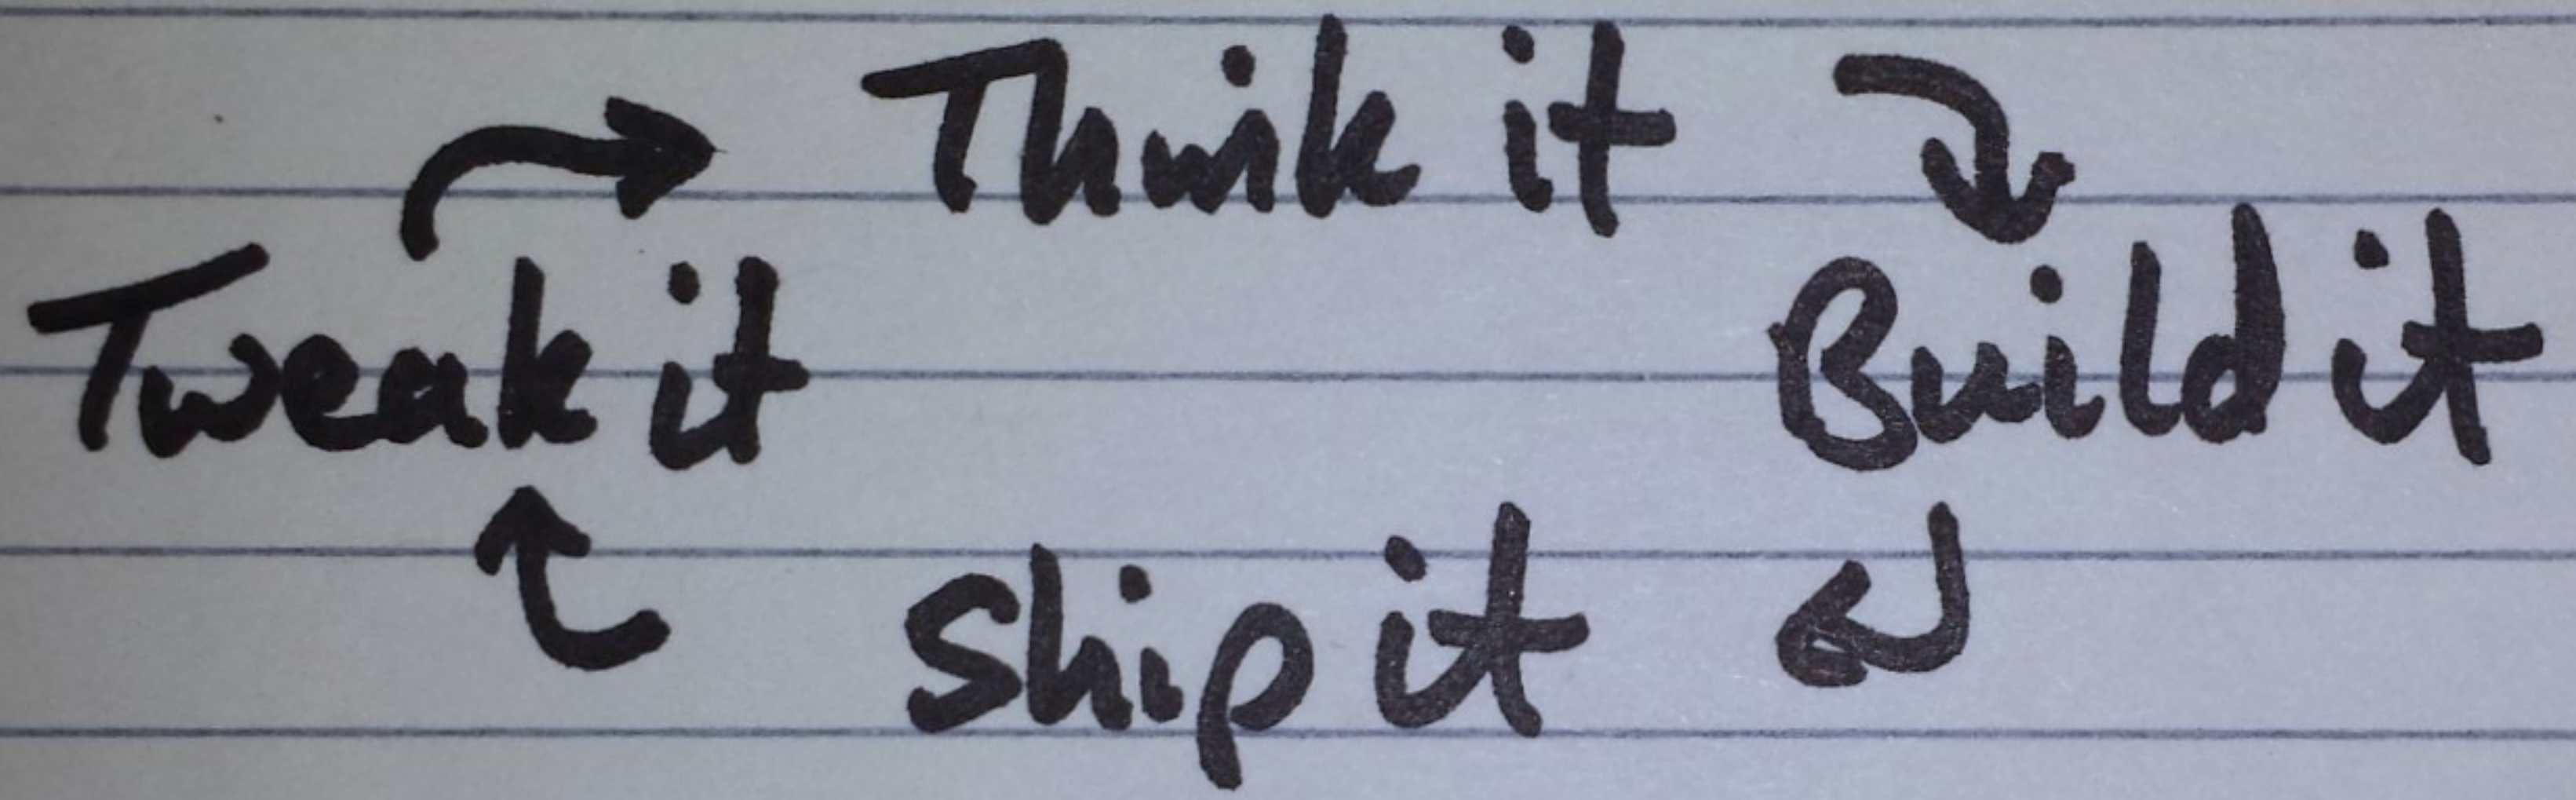 Think it
Build it
Ship it
Tweak it